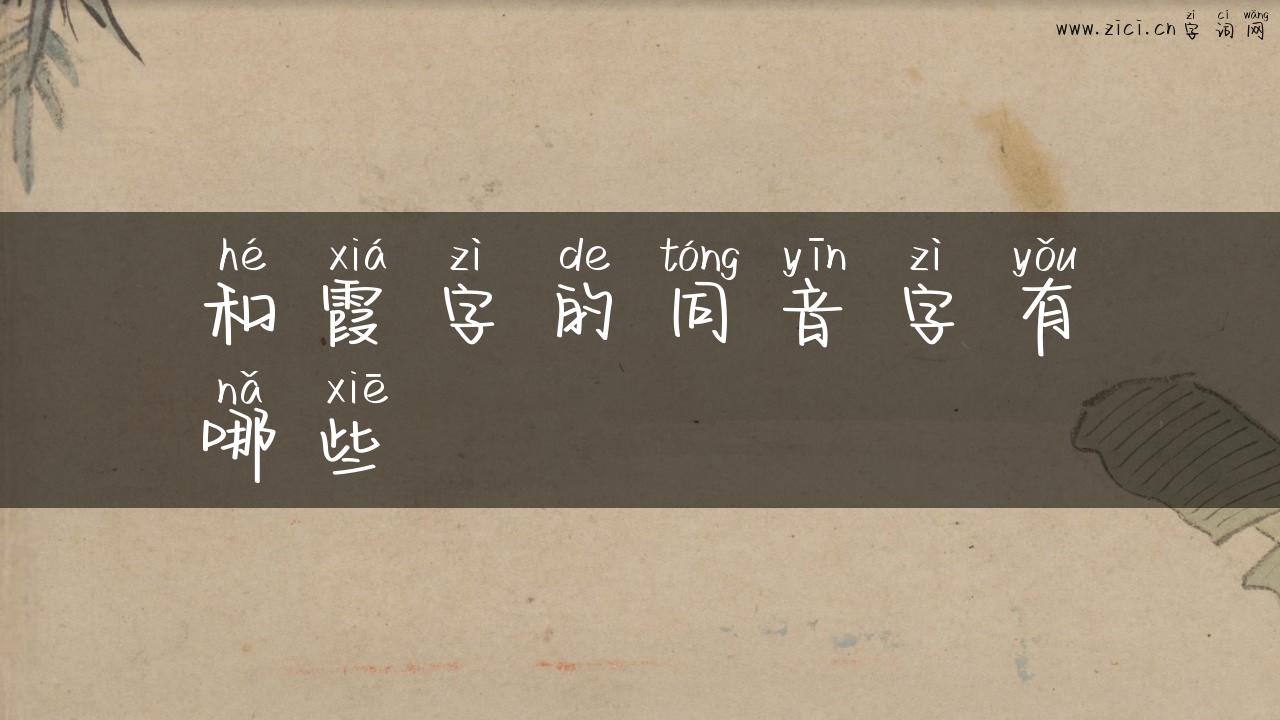 zì cí wǎng
www.zici.cn 字 词 网
hé xiá zì de tóng yīn zì yǒu
和 霞 字 的 同 音 字 有
nǎ xiē
哪 些